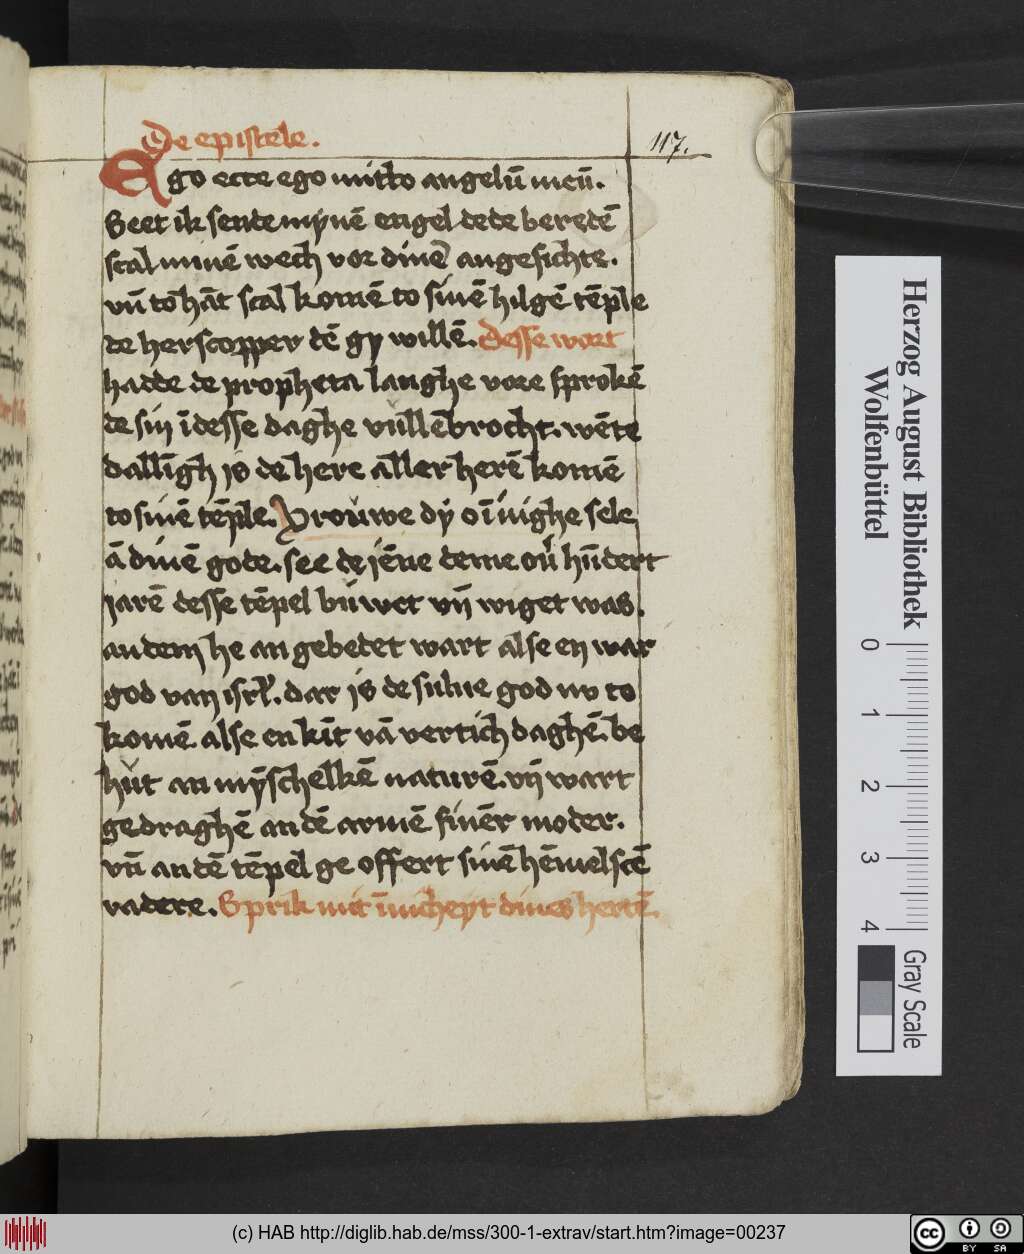 De epistele.
117.
Ego ecce ego mitto angelū meū.
Seet ik sende mynē engel de de beredē
scal minē wech vor dinē angesichte.
vn̄ to hāt scal komē to sinē hilgē tēple
de herscopper dē gy willē. Desse wort
hadde de propheta langhe vore sprokē
de sin ī desse daghe vullēbrocht. wēte
dallīgh is de here aller herē komē
to sinē tēple. Vrouwe dy o īnighe sele
ā dinē gode. see de iēne deme ou̇ hūdert
iarē desse tēpel buwet vn̄ wiget was.
an dem he an gebedet wart alse en war
god van isrl̄. dar is de sulue god nv to
komē alse en kīt vā vertich daghē. be
hut an mȳschelkē naturē. vn̄ wart
gedraghē an dē armē sinēr moder.
vn̄ an dē tēpel ge offert sinē hēmelscē
vadere. Sprik mit īnicheyt dines hertē.
Herzog August Bibliothek
Wolfenbüttel
0 1 2 3 4
Gray Scale
(c) HAB http://diglib.hab.de/mss/300-1-extrav/start.htm?image=00237
cc BY SA